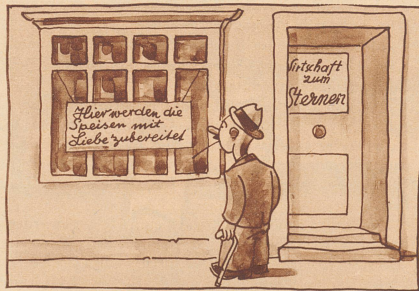 Hier werden die
Speisen mit
Liebe zubereitet
Wirtschaft
zum
Sternen